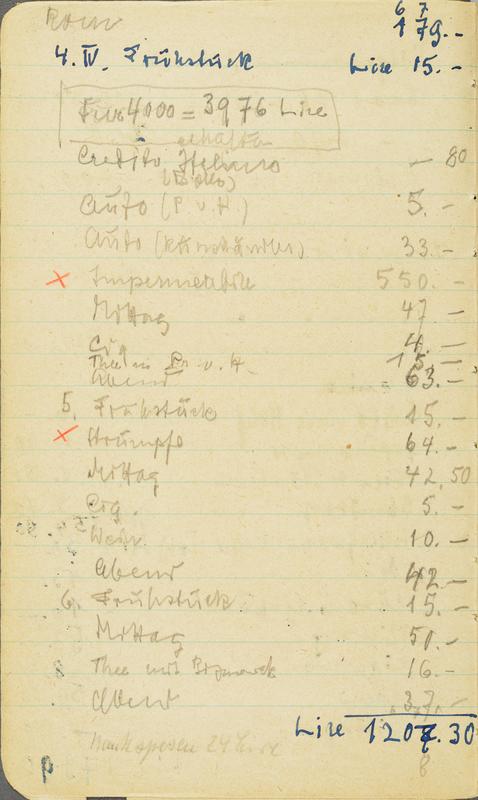 Rom
6 7
179.-
4. IV. Frühstück Lire 15.-
4000 = 3976 Lire
erhalten
Credito Italiano - 80
Auto (P. v. H.) 5.-
Auto (Kunsthändler) 33.-
x Impermeabile 550.-
Mittag 47 -
Cig 4.-
Thee m. Pr. v. H. 15.-
Abend 63.-
5. Frühstück 15.-
x Strümpfe 64.-
Mittag 42,50
Cig. 5.-
Wein 10.-
Abend 42.-
6. Frühstück 15.-
Mittag 50.-
Thee mit Bismarck 16.-
Abend 37.-
Lire 1207.30
8
Bankspesen 24 Lire